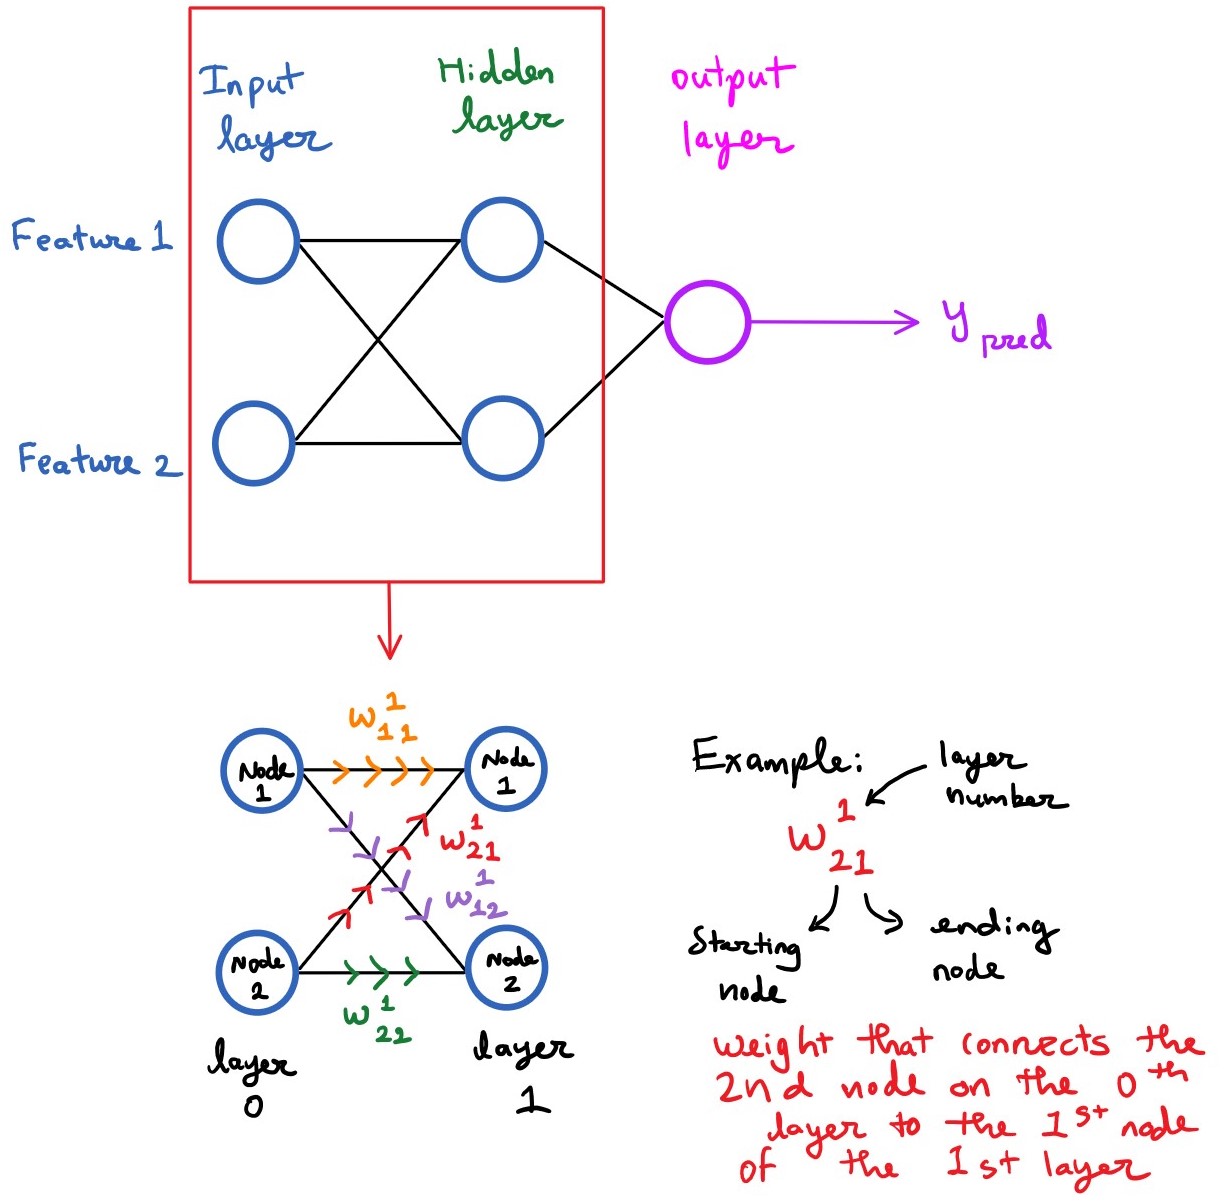 Input
layer
Hidden
layer
output
layer
Feature 1
Feature 2
y pred
w¹₁₁
Node
1
Node
1
w¹₂₁
w¹₁₂
Node
2
Node
2
w¹₂₂
layer
0
layer
1
Example:
layer
number
w¹₂₁
Starting
node
ending
node
weight that connects the
2nd node on the 0th
layer to the 1st node
of the 1st layer